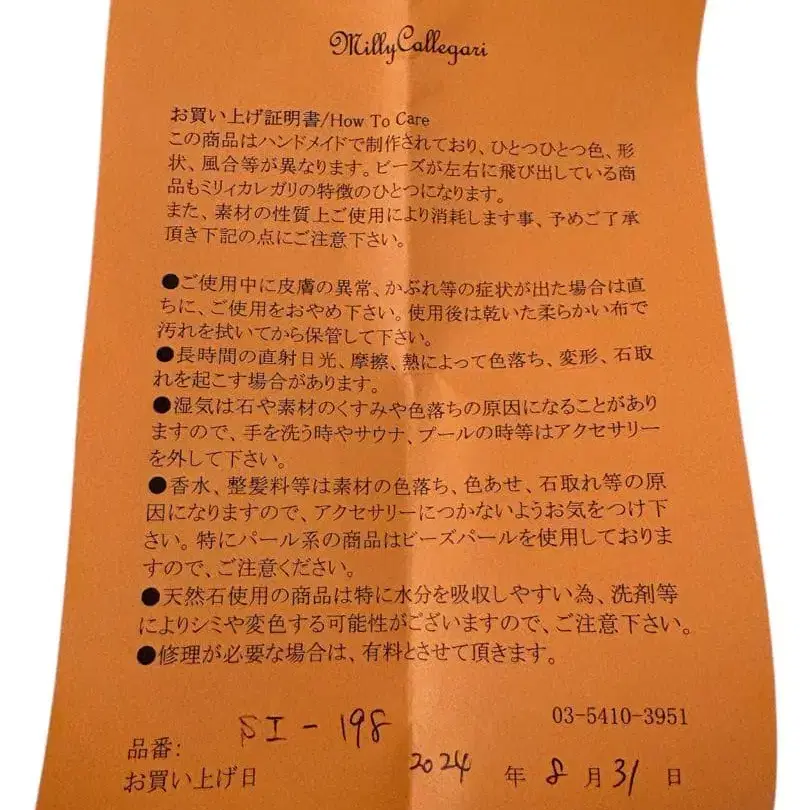 MillyCallegari
お買い上げ証明書/How To Care
この商品はハンドメイドで制作されており、ひとつひとつ色、形
状、風合等が異なります。ビーズが左右に飛び出している商
品もミリィカレガリの特徴のひとつになります。
また、素材の性質上ご使用により消耗します事、予めご了承
頂き下記の点にご注意下さい。
●ご使用中に皮膚の異常、かぶれ等の症状が出た場合は直
ちに、ご使用をおやめ下さい。使用後は乾いた柔らかい布で
汚れを拭いてから保管して下さい。
●長時間の直射日光、摩擦、熱によって色落ち、変形、石取
れを起こす場合があります。
●湿気は石や素材のくすみや色落ちの原因になることがあり
ますので、手を洗う時やサウナ、プールの時等はアクセサリー
を外して下さい。
●香水、整髪料等は素材の色落ち、色あせ、石取れ等の原
因になりますので、アクセサリーにつかないようお気をつけ下
さい。特にパール系の商品はビーズパールを使用しておりま
すので、ご注意ください。
●天然石使用の商品は特に水分を吸収しやすい為、洗剤等
によりシミや変色する可能性がございますので、ご注意下さい。
●修理が必要な場合は、有料とさせて頂きます。
03-5410-3951
品番: SI-198
お買い上げ日 2024 年 8 月 31 日